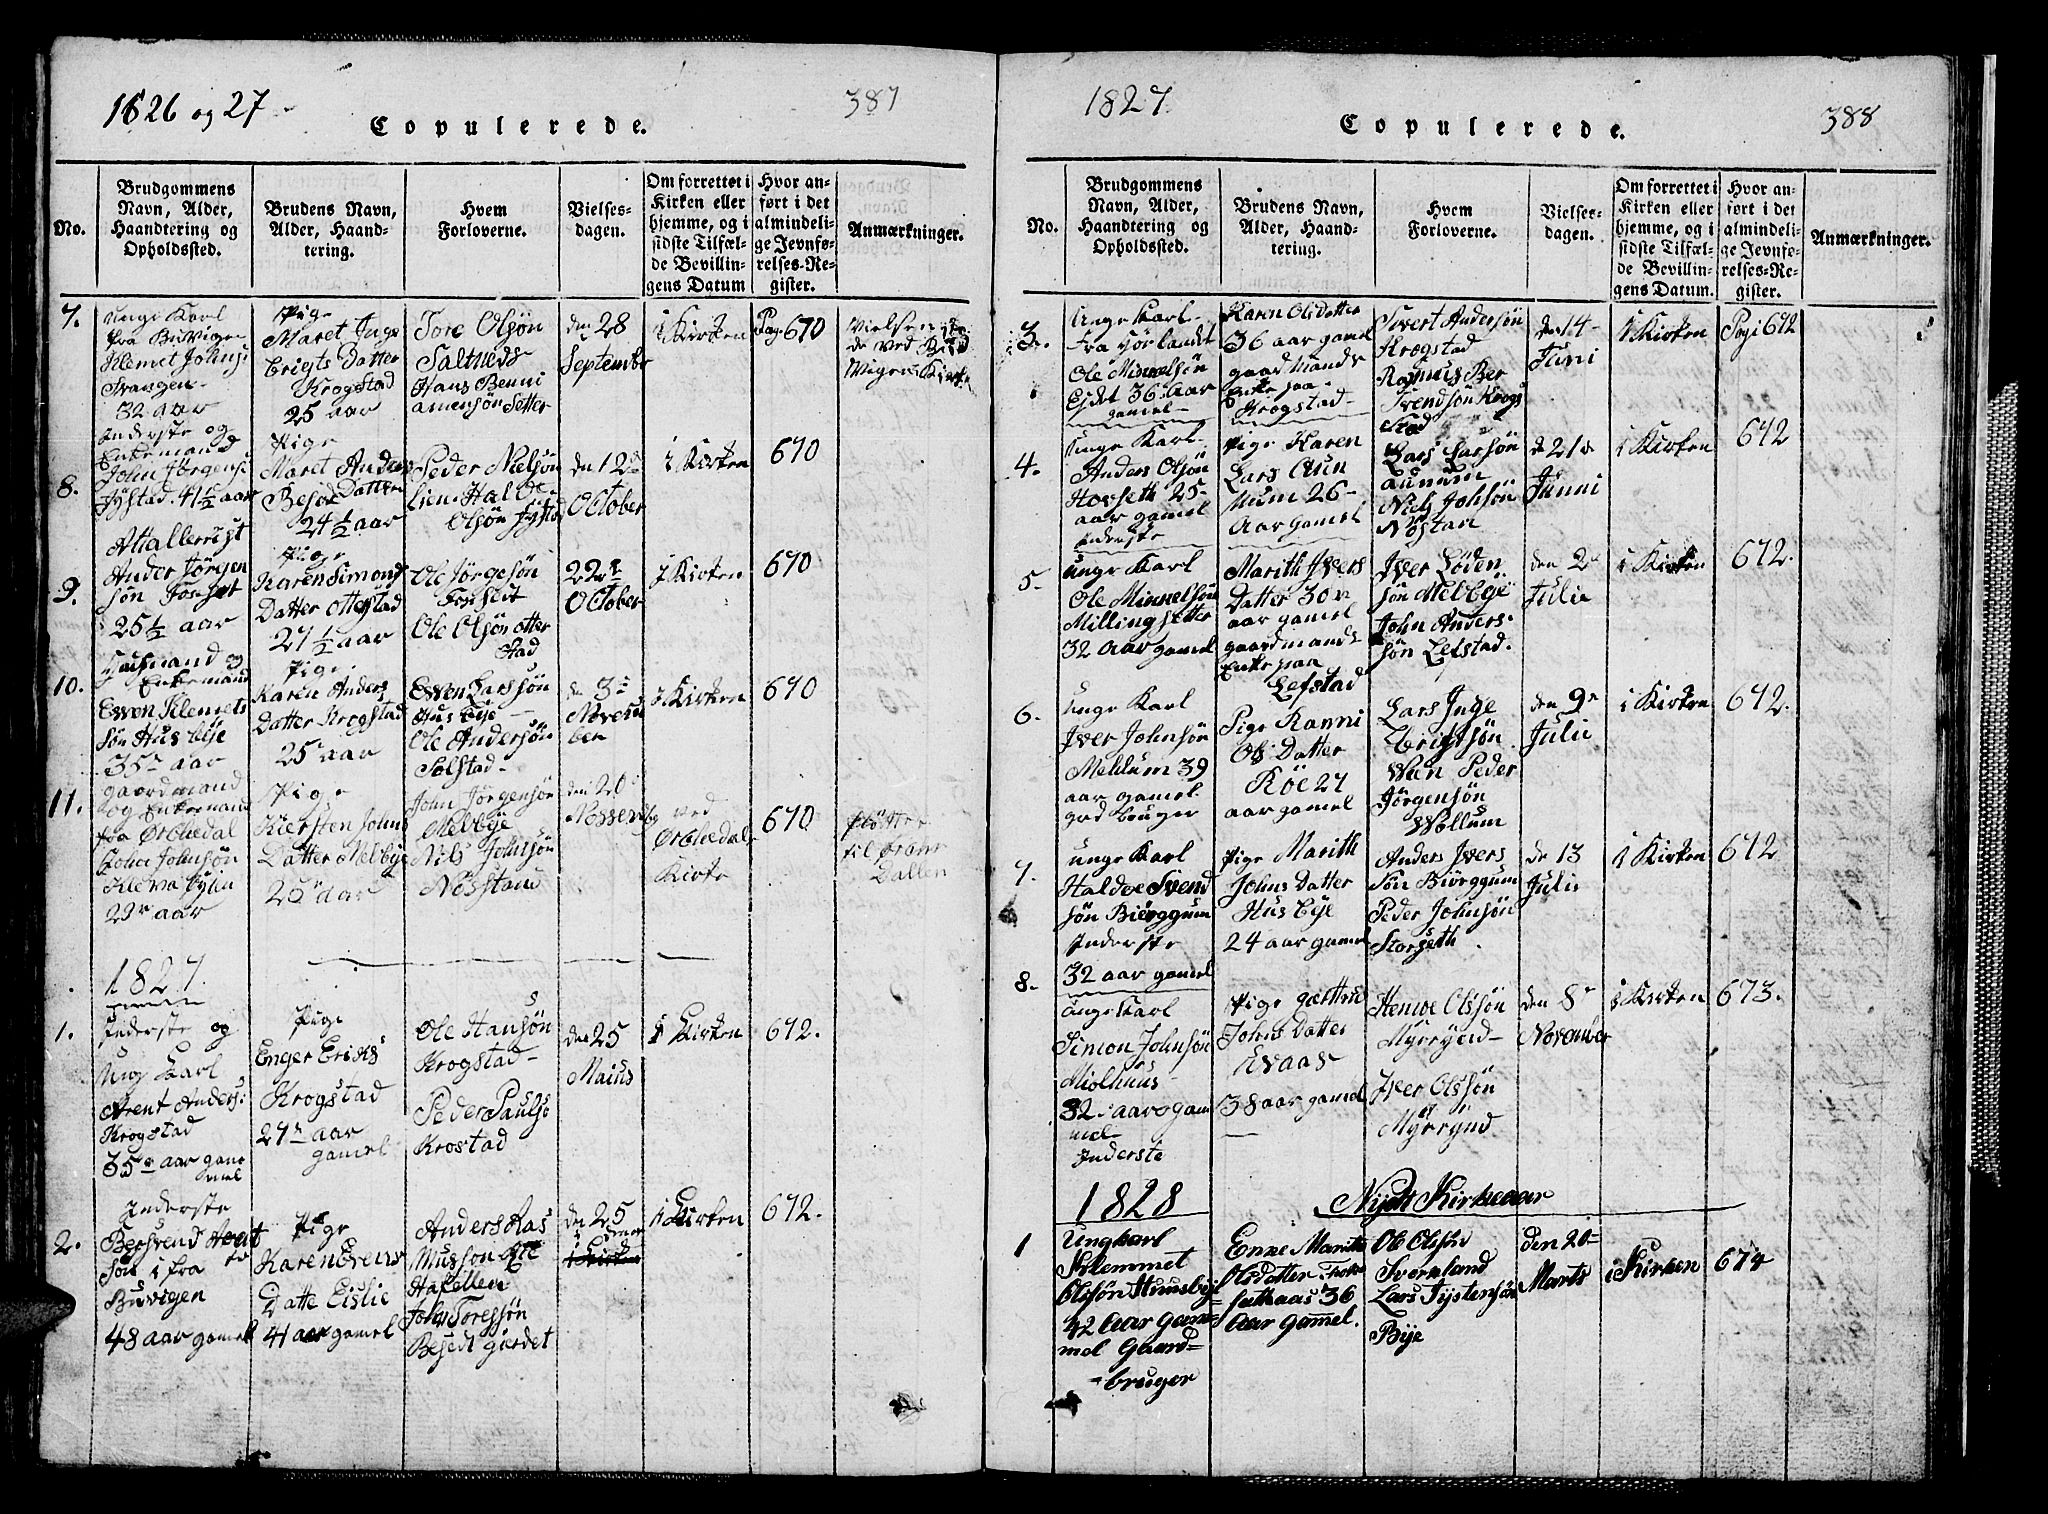 1826 og 27
387
Copulerede.
No.
Brudgommens Navn, Alder, Haandtering og Opholdssted.
Brudens Navn, Alder, Haandtering.
Hvem Forloverne.
Vielsesdagen.
Om forrettet i Kirken eller hjemme, og i sidste Tilfælde Bevillingens Datum
Hvor anført i det almindelige Jevnførelses-Register.
Anmærkninger.
7.
unge Karl
fra Buvigen
Klemet Johns
Svangen
32 aar
Pige
Maret Inge
brigts Datter
Krogstad
25 aar
Tore Olsøn
Saltnes
Hans Benni
amensøn Setter
den 28
September
i Kirken
Pag 670
Vielsen
ved
Vigens Kirke
8.
Inderste og
Enkemand
John Jørgens
Fystad 41½ aar
Pige
Maret Anders
Datter
24½ aar
Peder Nielsøn
lien Halde
Olsøn Fystad
den 12
October
i Kirken
670
9.
Ander Jørgen
søn
25½ aar
Pige
Karen Simons
Datter Ottestad
27½ aar
Ole Jørgesøn
Ole Olsøn Otter
Stad
22
October
i Kirken
670
10.
Enkemand
Even Klemets
søn Husbye
35 aar
Pige
Karen Anders
Datter Krogstad
25 aar
Even Larssøn
Husbye
Ole Andersøn
Solstad
de 3
Novem
ber
i Kirken
670
11.
gaardmand
og Enkemand
fra Orchedal
John Johnsøn
29 aar
Pige
Kiersten Johns
Datter Melbye
25 aar
John Jørgensøn
Melbye
Nils Johnsøn
Nøsstand
den 20
ved
Orchedals
Kirke
670
fløtter
til
Dallen
1827.
1.
Inderste og
Ung Karl
Arent Anders
Krogstad
35 aar gam
mel
Pige
Enger Eriks
Krogstad
27 aar
gamel
Ole Hansøn
Krogstad
Peder Pauls
Krostad
den 25
Maius
i Kirken
672.
2.
Inderste
Bersvend Arent
søn i fra
Buvigen
48 aar gamel
Pige
Karen Evens
Datte Eislie
41 aar gamel
Anders Ras
musson
John Toressøn
Besedt gierdet
den 25
i Kirken
672.
1827.
Copulerede.
388
No.
Brudgommens Navn, Alder, Haandtering og Opholdssted.
Brudens Navn, Alder, Haandtering.
Hvem Forloverne.
Vielsesdagen.
Om forrettet i Kirken eller hjemme, og i sidste Tilfælde Bevillingens Datum.
Hvor anført i det almindelige Jevnførelses-Register.
Anmærkninger.
3.
Unge Karl
fra Hørlandet
Ole Mikkelsøn
36 aar
gamel
Karen Olsdatter
36 aar gamel
gaardMands
Enke paa
Krogstad
Sivert Andersøn
Krogstad
Rasmus Ber
svendsøn Krogs
stad
den 14
Juni
i Kirken
Pagi 672
4.
unge Karl
Anders Olsøn
Horseth 25
aar gamel
Inderste
Pige Karen
Lars Aun
mum 26
Aar gamel
Lars Larsøn
aunum
Niels Johsøn
Nøstan
de 21
Junni
i Kirken
672
5.
unge Karl
Ole Mikkelsøn
Millingsetter
32 Aar gamel
Marith Ivers
Datter 30
aar gamel
gaardmands
Enke paa
Lefstad
Iver Løden
søn Melbye
John Anders
søn Lefstad.
den 2
Julie
i Kirken
672.
6.
unge Karl
Iver Johnsøn
Meldum 39
aar gamel
grd bruger
Pige Ranni
Ols Datter
Røe 27
aar gamel
Lars Inge
brigtsøn
Peder
Jørgensøn
Wollum
den 9
Julii
i Kirken
672.
7.
unge Karl
Haldoe Svend
søn Biørggum
Inderste
32 aar gamel
Pige Marith
Johns Datter
Husbye
24 aar gamel
Anders Ivers
Søn Biørggum
Peder Johnsøn
Storseth
de 13
Julie
i Kirken
672
8.
unge Karl
Simon Johnsøn
Miølhuus
32 aar gam
mel
Inderste
Pige
Johns Datter
Kvaas
38 aar gamel
Olssøn
Iver Olssøn
den 8
November
i Kirken
673.
1828
Nydt Kirkeaar
1
Ungkarl
Klemmet
Olsøn Huusbye
42 Aar gam
mel Gaard
bruger
Enke Marith
Olsdatter
36
Aar Gamel.
Ole Olsøn
Lars Tystensøn
Bye
den 20
Marts
i Kirken
674